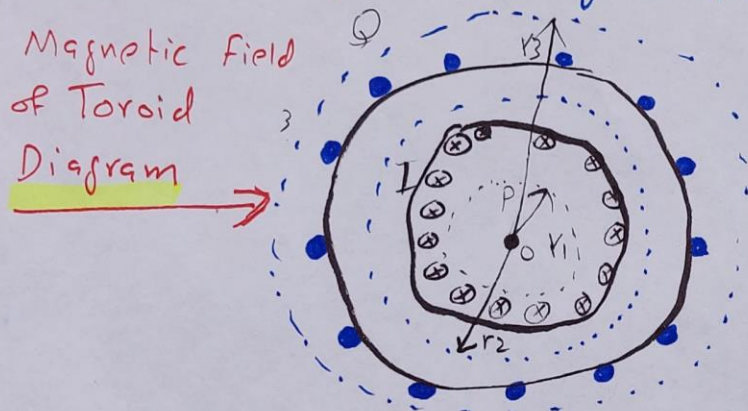 Magnetic field
of Toroid
Diagram
Q
r3
3
I
P
O
r1
r2